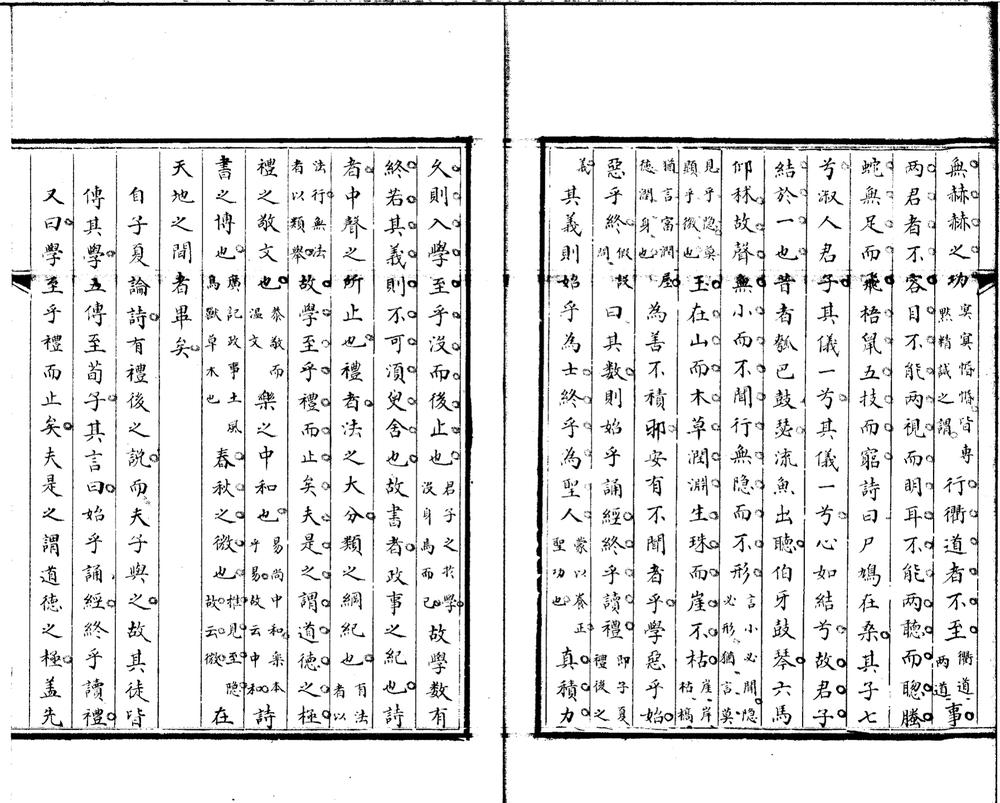 無赫赫之功冥冥惛惛皆專默精誠之謂行衢道者不至衢道兩道事
兩君者不容目不能兩視而明耳不能兩聽而聰螣
蛇無足而飛梧鼠五技而窮詩曰尸鳩在桑其子七
兮淑人君子其儀一兮其儀一兮心如結兮故君子
結於一也昔者瓠巴鼓瑟流魚出聽伯牙鼓琴六馬
仰秣故聲無小而不聞行無隱而不形言小必聞隱必形猶言莫
見乎隱莫顯乎微也玉在山而木草潤淵生珠而崖不枯崖岸枯槁
猶言富潤屋德潤身也為善不積邪安有不聞者乎學惡乎始
惡乎終假設問曰其數則始乎誦經終乎讀禮即子夏禮後之
義其義則始乎為士終乎為聖人蒙以養正聖功也真積力
久則入學至乎沒而後止也君子之於學沒身焉而已故學數有
終若其義則不可須臾舍也故書者政事之紀也詩
者中聲之所止也禮者法之大分類之綱紀也有法者以
法行無法者以類舉故學至乎禮而止矣夫是之謂道德之極
禮之敬文也恭敬而溫文樂之中和也易尚中和樂本乎易故云中和詩
書之博也廣記政事土風鳥獸草木也春秋之微也推見至隱故云微在
天地之間者畢矣
自子夏論詩有禮後之說而夫子與之故其徒皆
傳其學五傳至荀子其言曰始乎誦經終乎讀禮
又曰學至乎禮而止矣夫是之謂道德之極蓋先